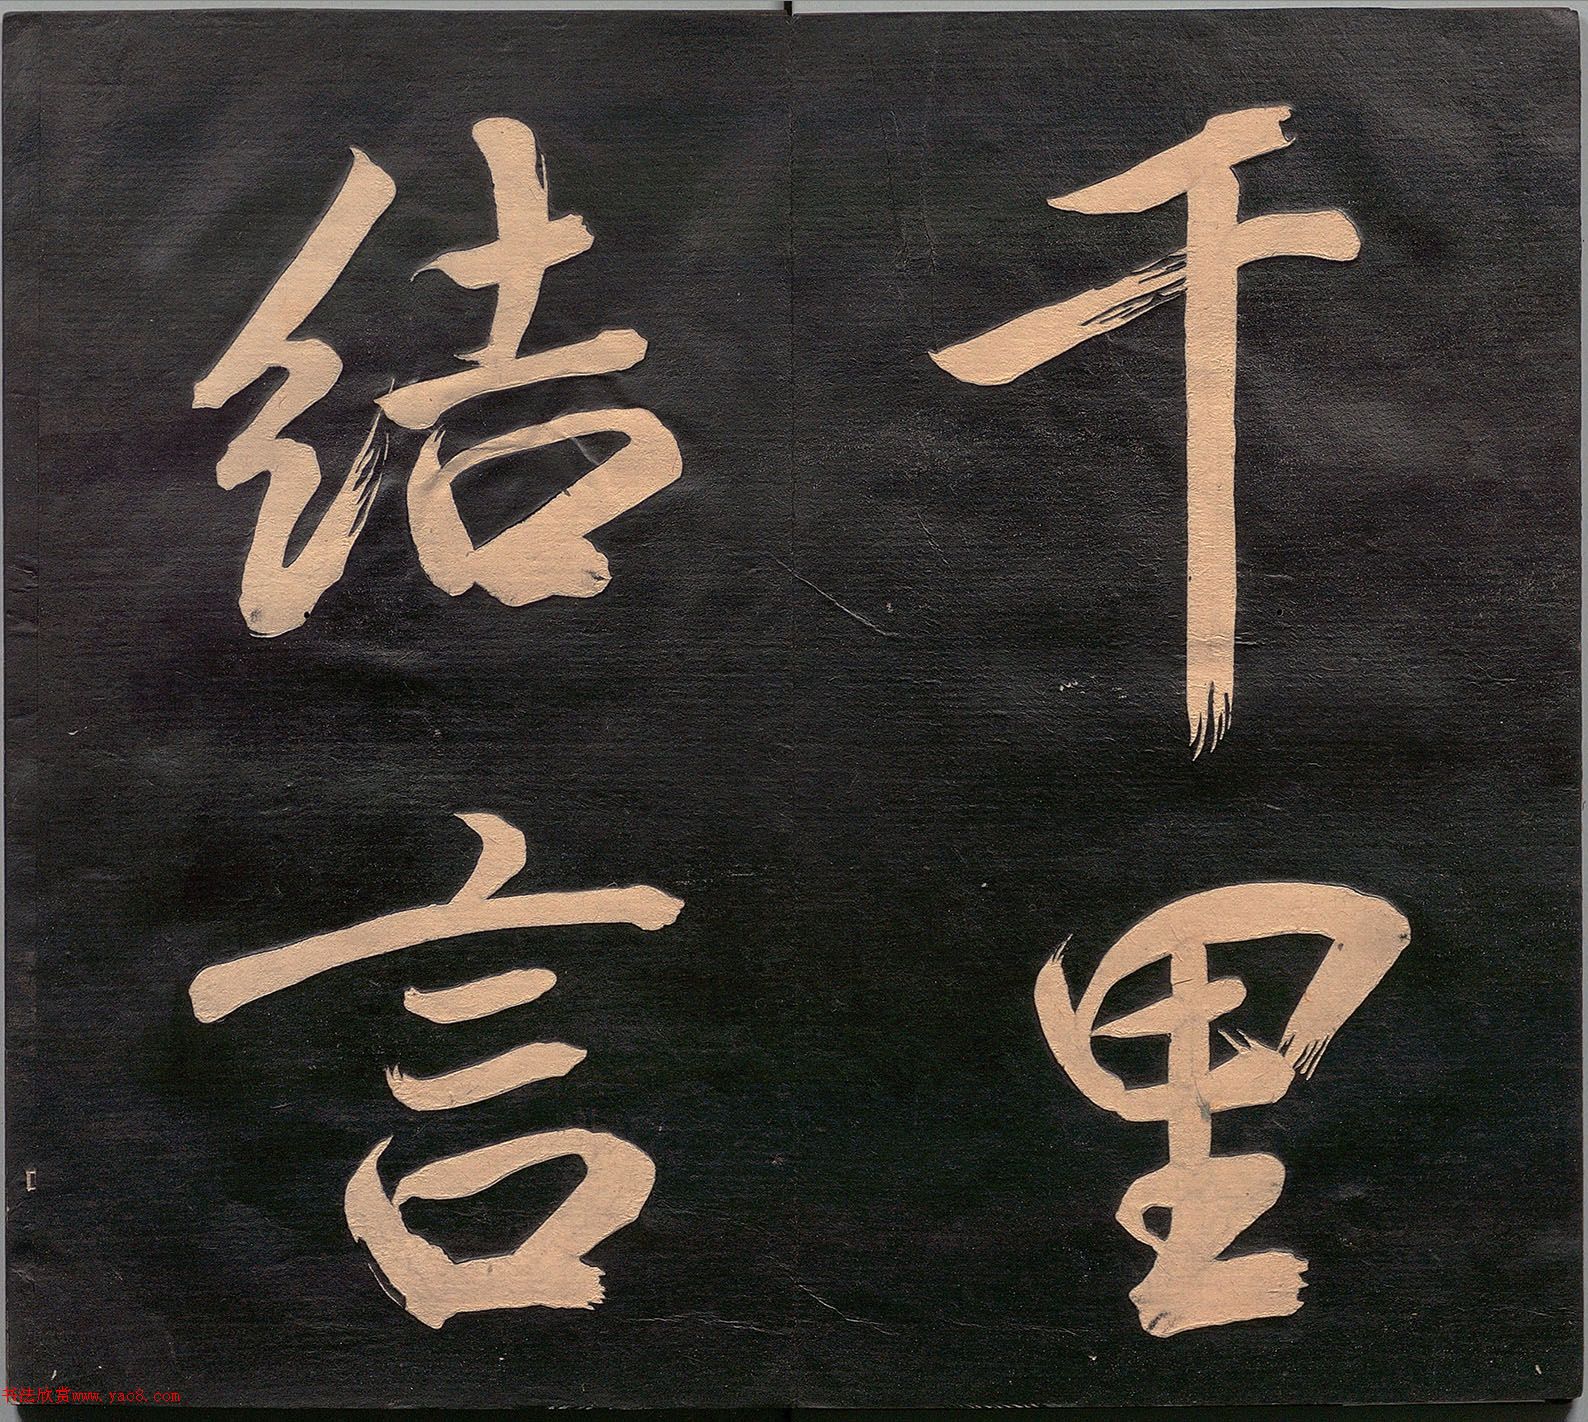 千里
结言
书法欣赏www.yac8.com